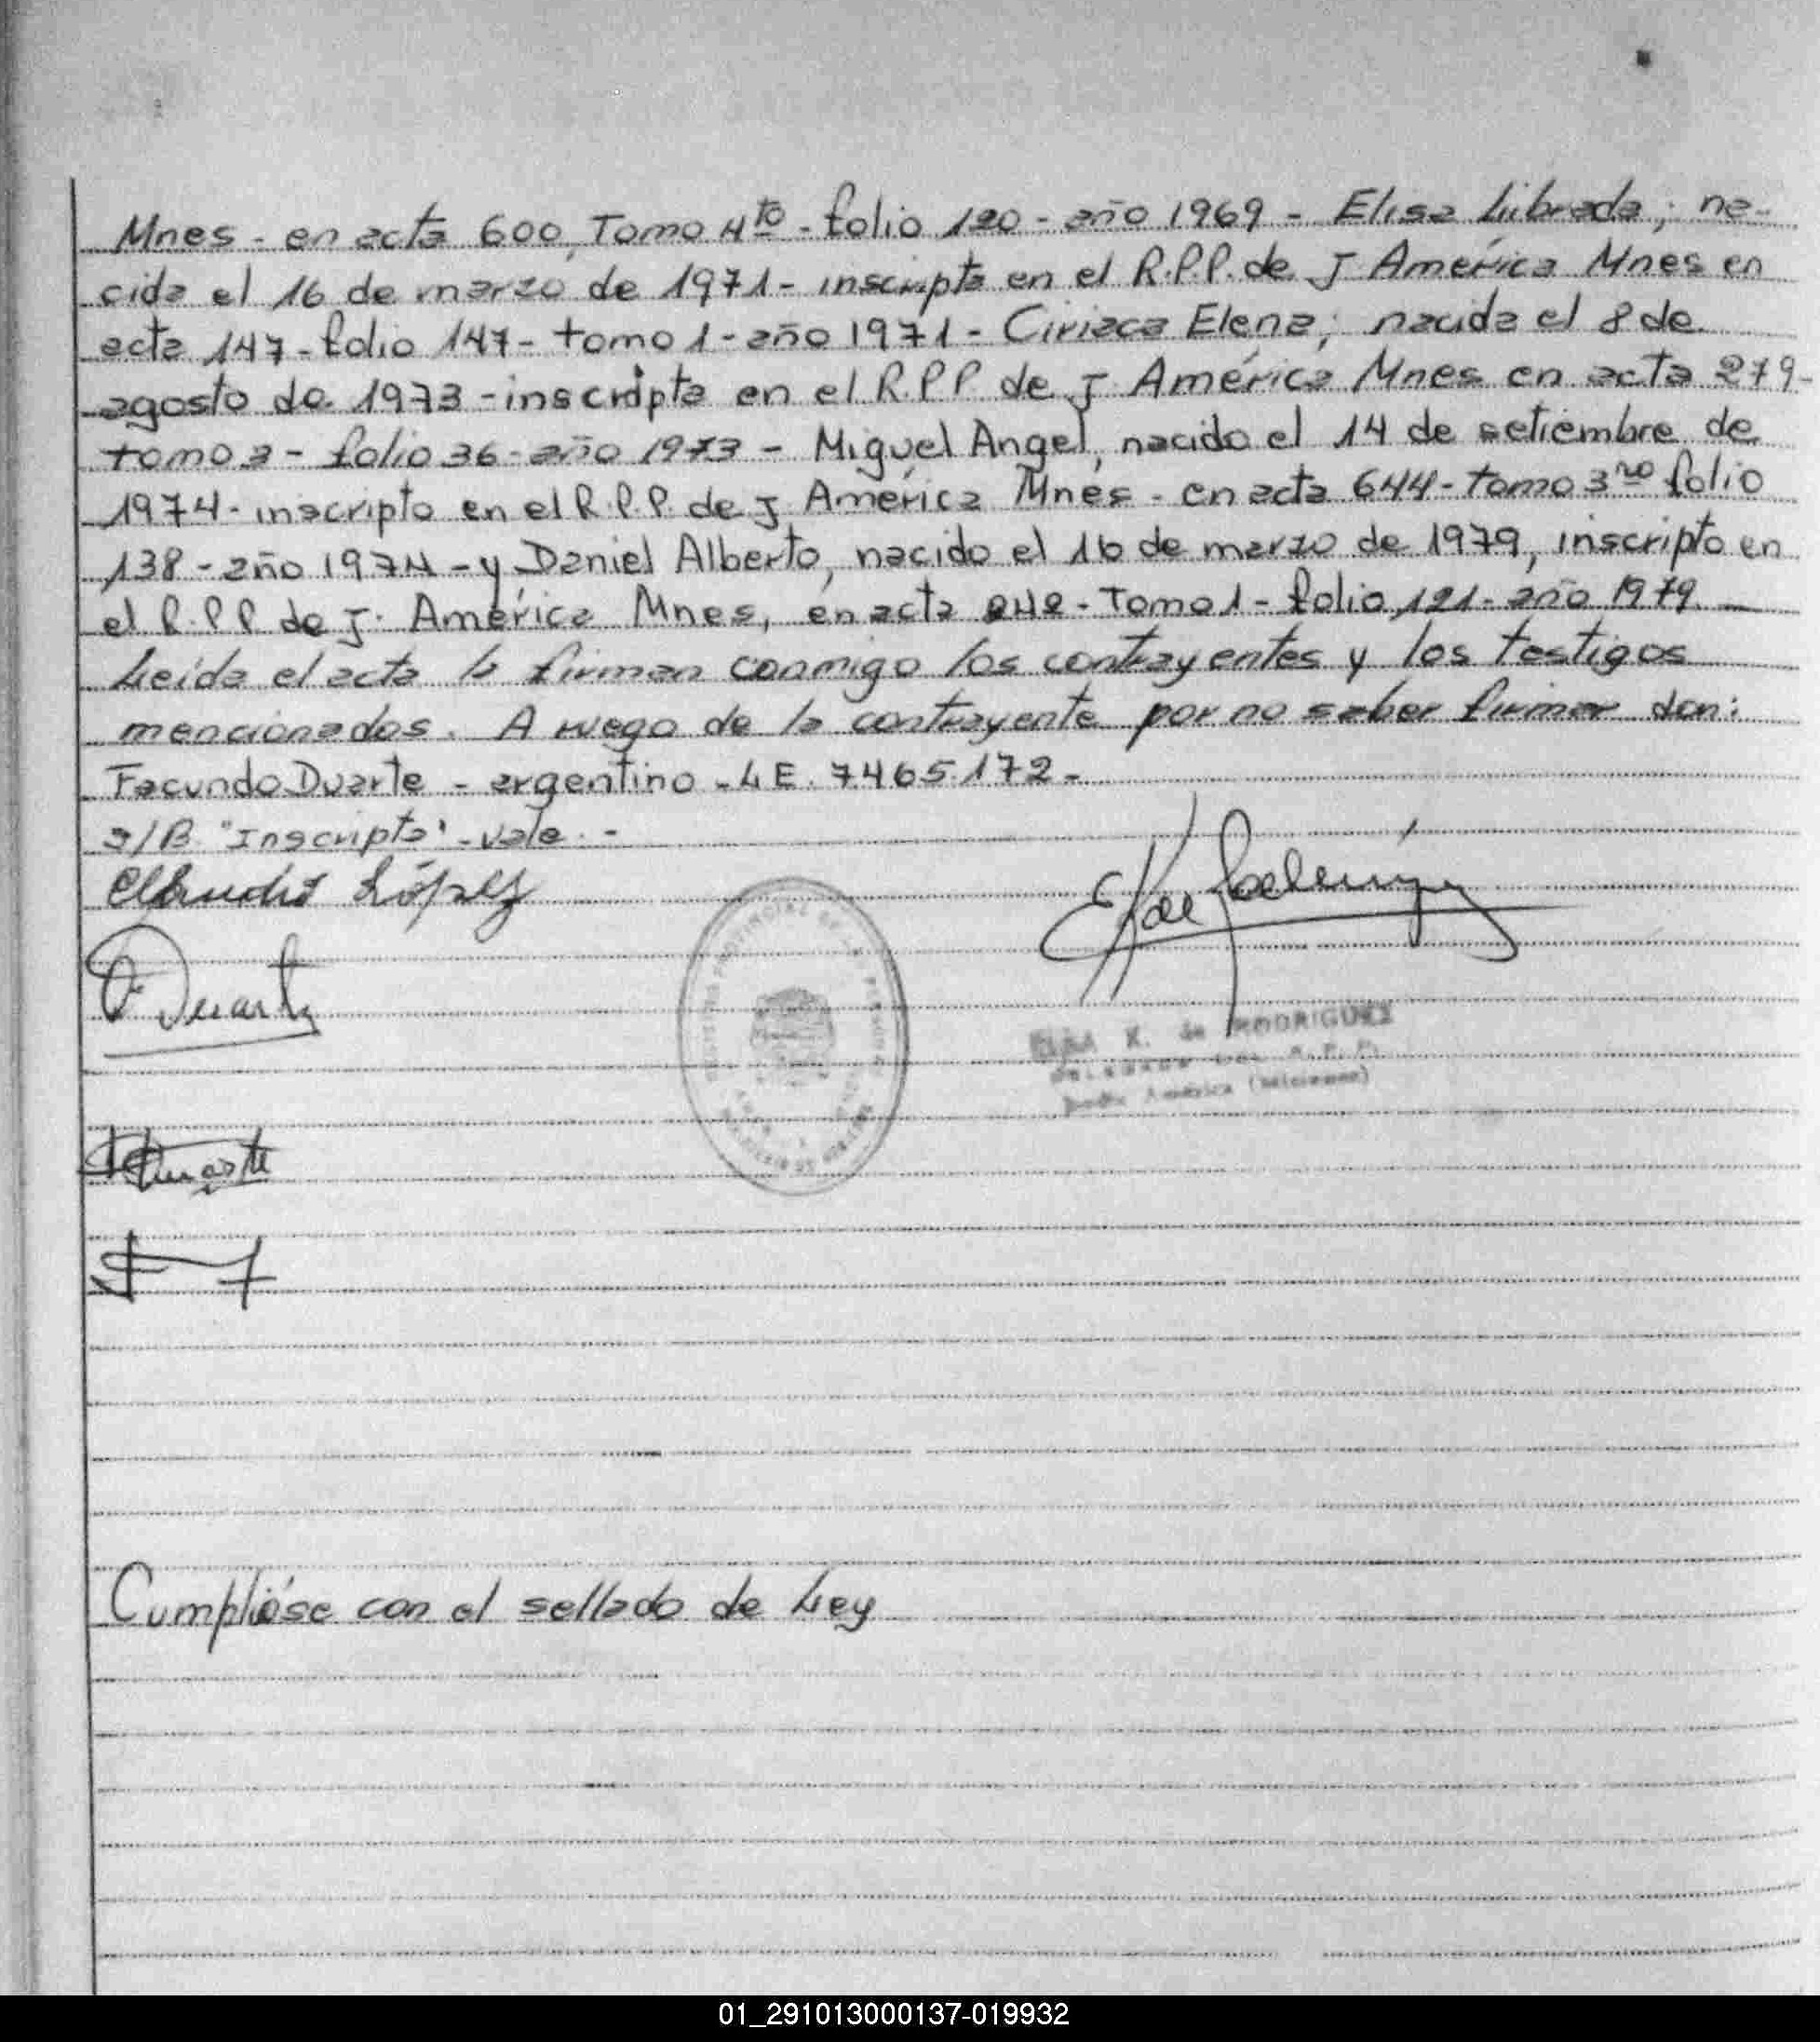 Mnes - en acta 600, Tomo 4to - folio 120 - año 1969 - Elisa Librada; na-
cida el 16 de marzo de 1971 - inscripta en el R.P.P. de J América Mnes en
acta 147 - folio 147 - tomo 1 - año 1971 - Ciriaca Elena; nacida el 8 de
agosto de 1973 - inscripta en el R.P.P de J América Mnes en acta 279 -
tomo 2 - folio 36 - año 1973 - Miguel Angel, nacido el 14 de setiembre de
1974 - inscripto en el R.P.P. de J América Mnes - en acta 644 - tomo 3ro folio
138 - año 1974 - y Daniel Alberto, nacido el 16 de marzo de 1979, inscripto en
el R.P.P de J. América Mnes, en acta 242 - Tomo 1 - folio 121 - año 1979.
Leída el acta la firman conmigo los contrayentes y los testigos
mencionados. A ruego de la contrayente por no saber firmar don:
Facundo Duarte - argentino - L E. 7465.172 -
s/B "Inscripta" - vale. -
Claudio López
F Duarte
ELSA K. de RODRIGUEZ
R. P. P.
América (Misiones)
Duarte
Cumplióse con el sellado de Ley
01_291013000137-019932